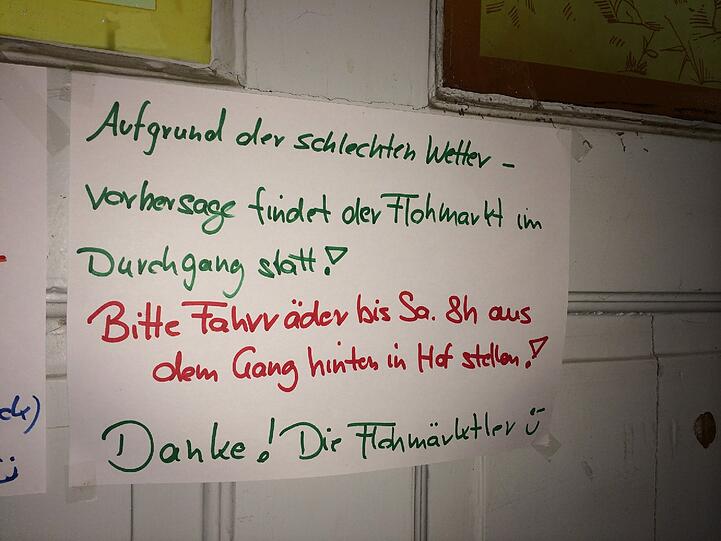 Aufgrund der schlechten Wetter -
vorhersage findet der Flohmarkt im
Durchgang statt!
Bitte Fahrräder bis Sa. 8h aus
dem Gang hinten in Hof stellen!
Danke! Die Flohmärktler